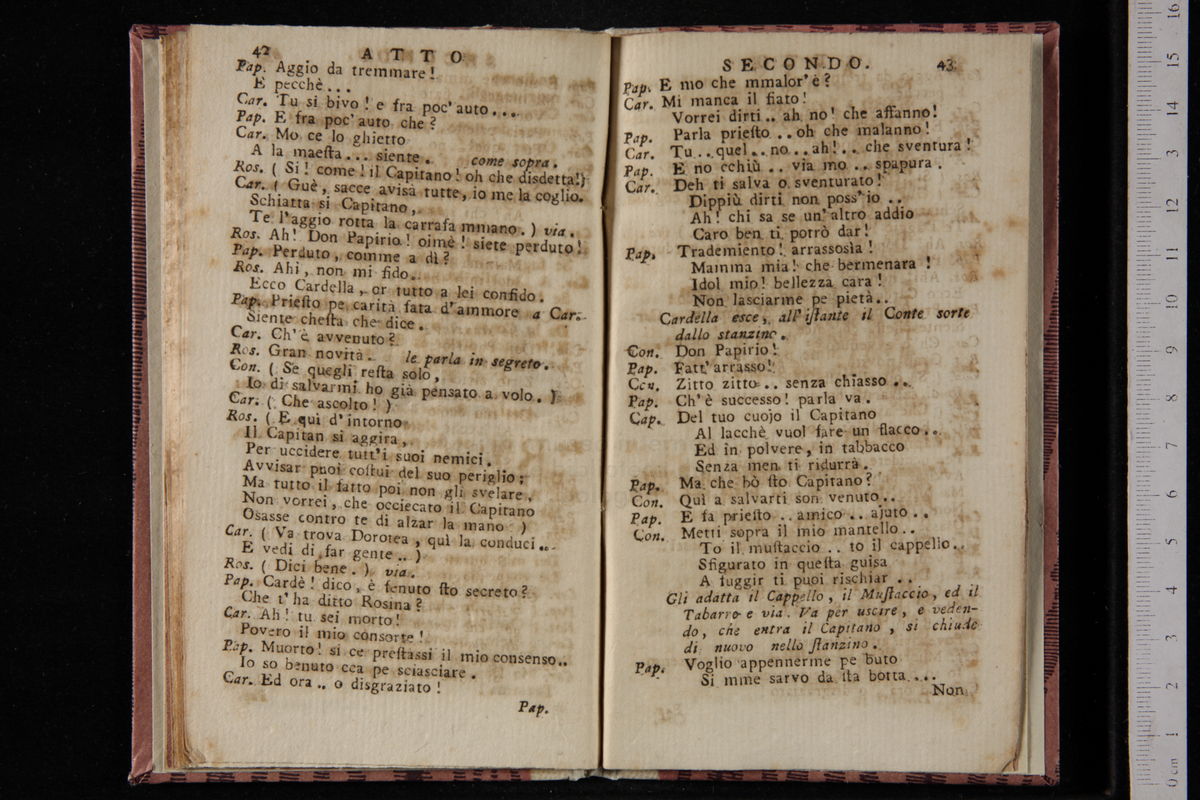 42 ATTO
Pap. Aggio da tremmare!
E pecchè...
Car. Tu si bivo! e fra poc' auto....
Pap. E fra poc' auto che?
Car. Mo ce lo ghietto
A la maeſta... siente. come sopra.
Ros. ( Si! come! il Capitano! oh che disdetta!)
Car. ( Guè, sacce avisà tutte, io me la coglio.
Schiatta si Capitano,
Te l'aggio rotta la carrafa mmano. ) via.
Ros. Ah! Don Papirio! oimè! siete perduto!
Pap. Perduto, comme a dì?
Ros. Ahi, non mi fido.
Ecco Cardella, or tutto a lei confido.
Pap. Prieſto pe carità fata d'ammore a Car.
Siente cheſta che dice.
Car. Ch'è avvenuto?
Ros. Gran novità. le parla in segreto.
Con. ( Se quegli reſta solo,
Io di salvarmi ho già pensato a volo. )
Car. ( Che ascolto! )
Ros. ( E qui d'intorno
Il Capitan si aggira,
Per uccidere tutt'i suoi nemici.
Avvisar puoi coſtui del suo periglio;
Ma tutto il fatto poi non gli svelare,
Non vorrei, che occiecato il Capitano
Osasse contro te di alzar la mano )
Car. ( Va trova Dorotea, quì la conduci..
E vedi di far gente.. )
Ros. ( Dici bene. ) via.
Pap. Cardè! dico, è fenuto ſto secreto?
Che t'ha ditto Rosina?
Car. Ah! tu sei morto!
Povero il mio consorte!
Pap. Muorto! si ce preſtassi il mio consenso..
Io so benuto cca pe sciasciare.
Car. Ed ora.. o disgraziato!
Pap.
SECONDO. 43
Pap. E mo che mmalor'è?
Car. Mi manca il fiato!
Vorrei dirti.. ah no! che affanno!
Pap. Parla prieſto.. oh che malanno!
Car. Tu.. quel.. no.. ah!.. che sventura!
Pap. E no cchiù.. via mo.. spapura.
Car. Deh ti salva o sventurato!
Dippiù dirti non poss'io..
Ah! chi sa se un'altro addio
Caro ben ti potrò dar!
Pap. Trademiento! arrassosìa!
Mamma mia! che bermenara!
Idol mio! bellezza cara!
Non lasciarme pe pietà..
Cardella esce, all'iſtante il Conte sorte
dallo stanzino.
Con. Don Papirio!
Pap. Fatt'arrasso!
Con. Zitto zitto.. senza chiasso..
Pap. Ch'è successo! parla va.
Cap. Del tuo cuojo il Capitano
Al lacchè vuol fare un flacco..
Ed in polvere, in tabbacco
Senza men ti ridurrà.
Pap. Ma che bò ſto Capitano?
Con. Quì a salvarti son venuto..
Pap. E fa prieſto.. amico.. ajuto..
Con. Metti sopra il mio mantello..
To il muſtaccio.. to il cappello..
Sfigurato in queſta guisa
A fuggir ti puoi rischiar..
Gli adatta il Cappello, il Muſtaccio, ed il
Tabarro e via. Va per uscire, e veden-
do, che entra il Capitano, si chiude
di nuovo nello ſtanzino.
Pap. Voglio appennerme pe buto
Si mme sarvo da ſta botta....
Non